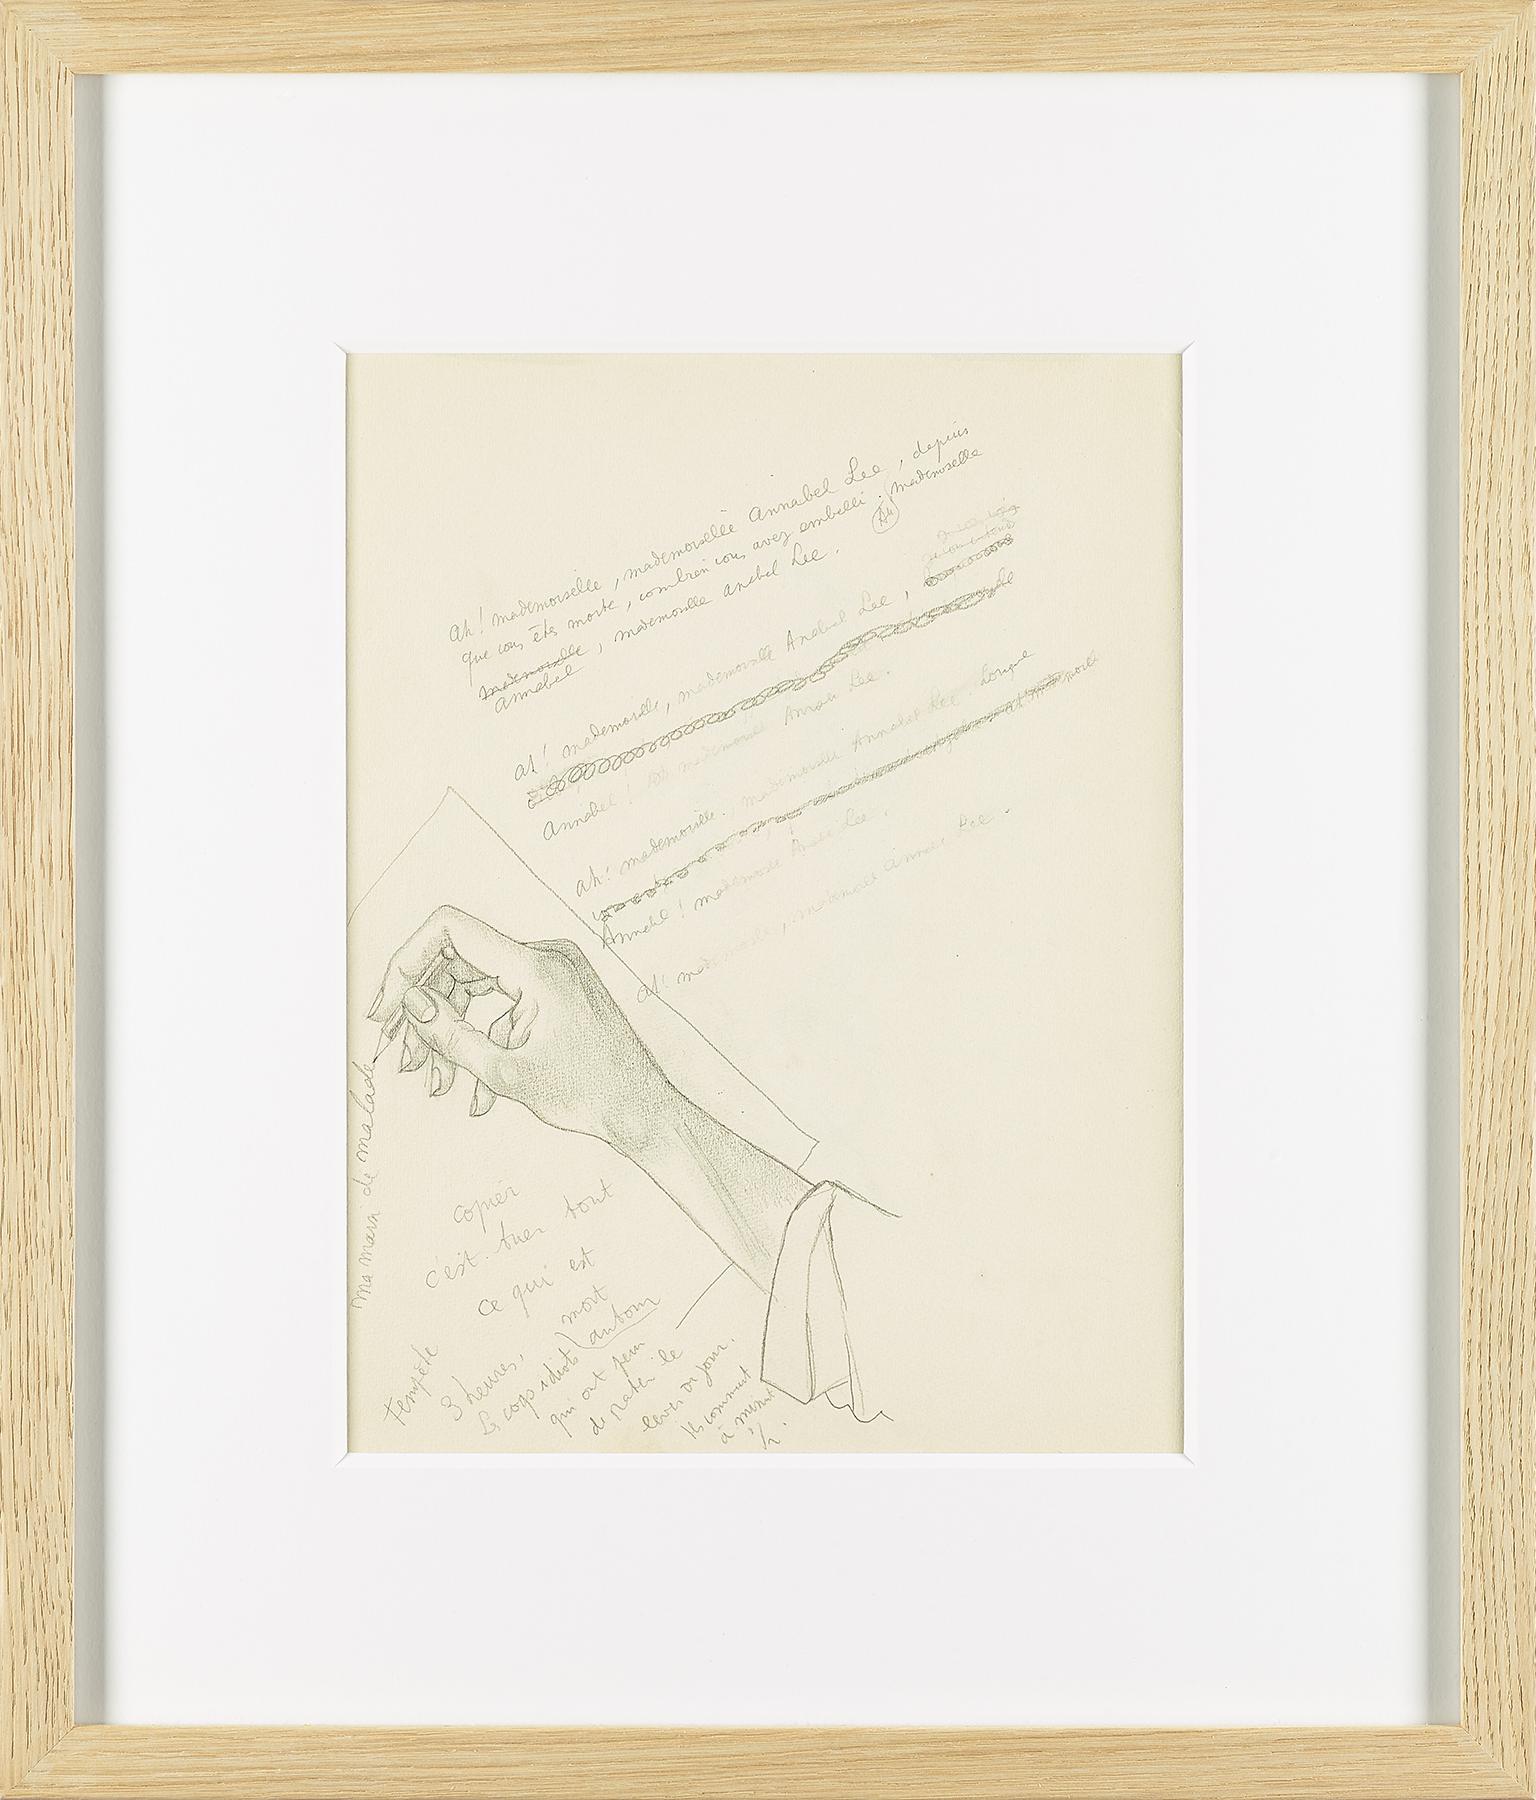 Ah! mademoiselle, mademoiselle Annabel Lee, depuis
que vous êtes morte, combien vous avez embelli. Ah mademoiselle
mademoiselle, mademoiselle Anabel Lee.
Annabel
Ah! mademoiselle, mademoiselle Anabel Lee,
Annabel! Ah mademoiselle Lee.
Ah! mademoiselle, mademoiselle Annabel Lee. Longue
Annabel! mademoiselle Lee.
Ah! mademoiselle, mademoiselle Lee.
ma main de malade
copier
c'est tuer tout
ce qui est
mort
Tempête
3 heures.
Les coqs idiots autour
qui ont peur
de rater le
lever du jour.
Ils
à minuit
1/2.